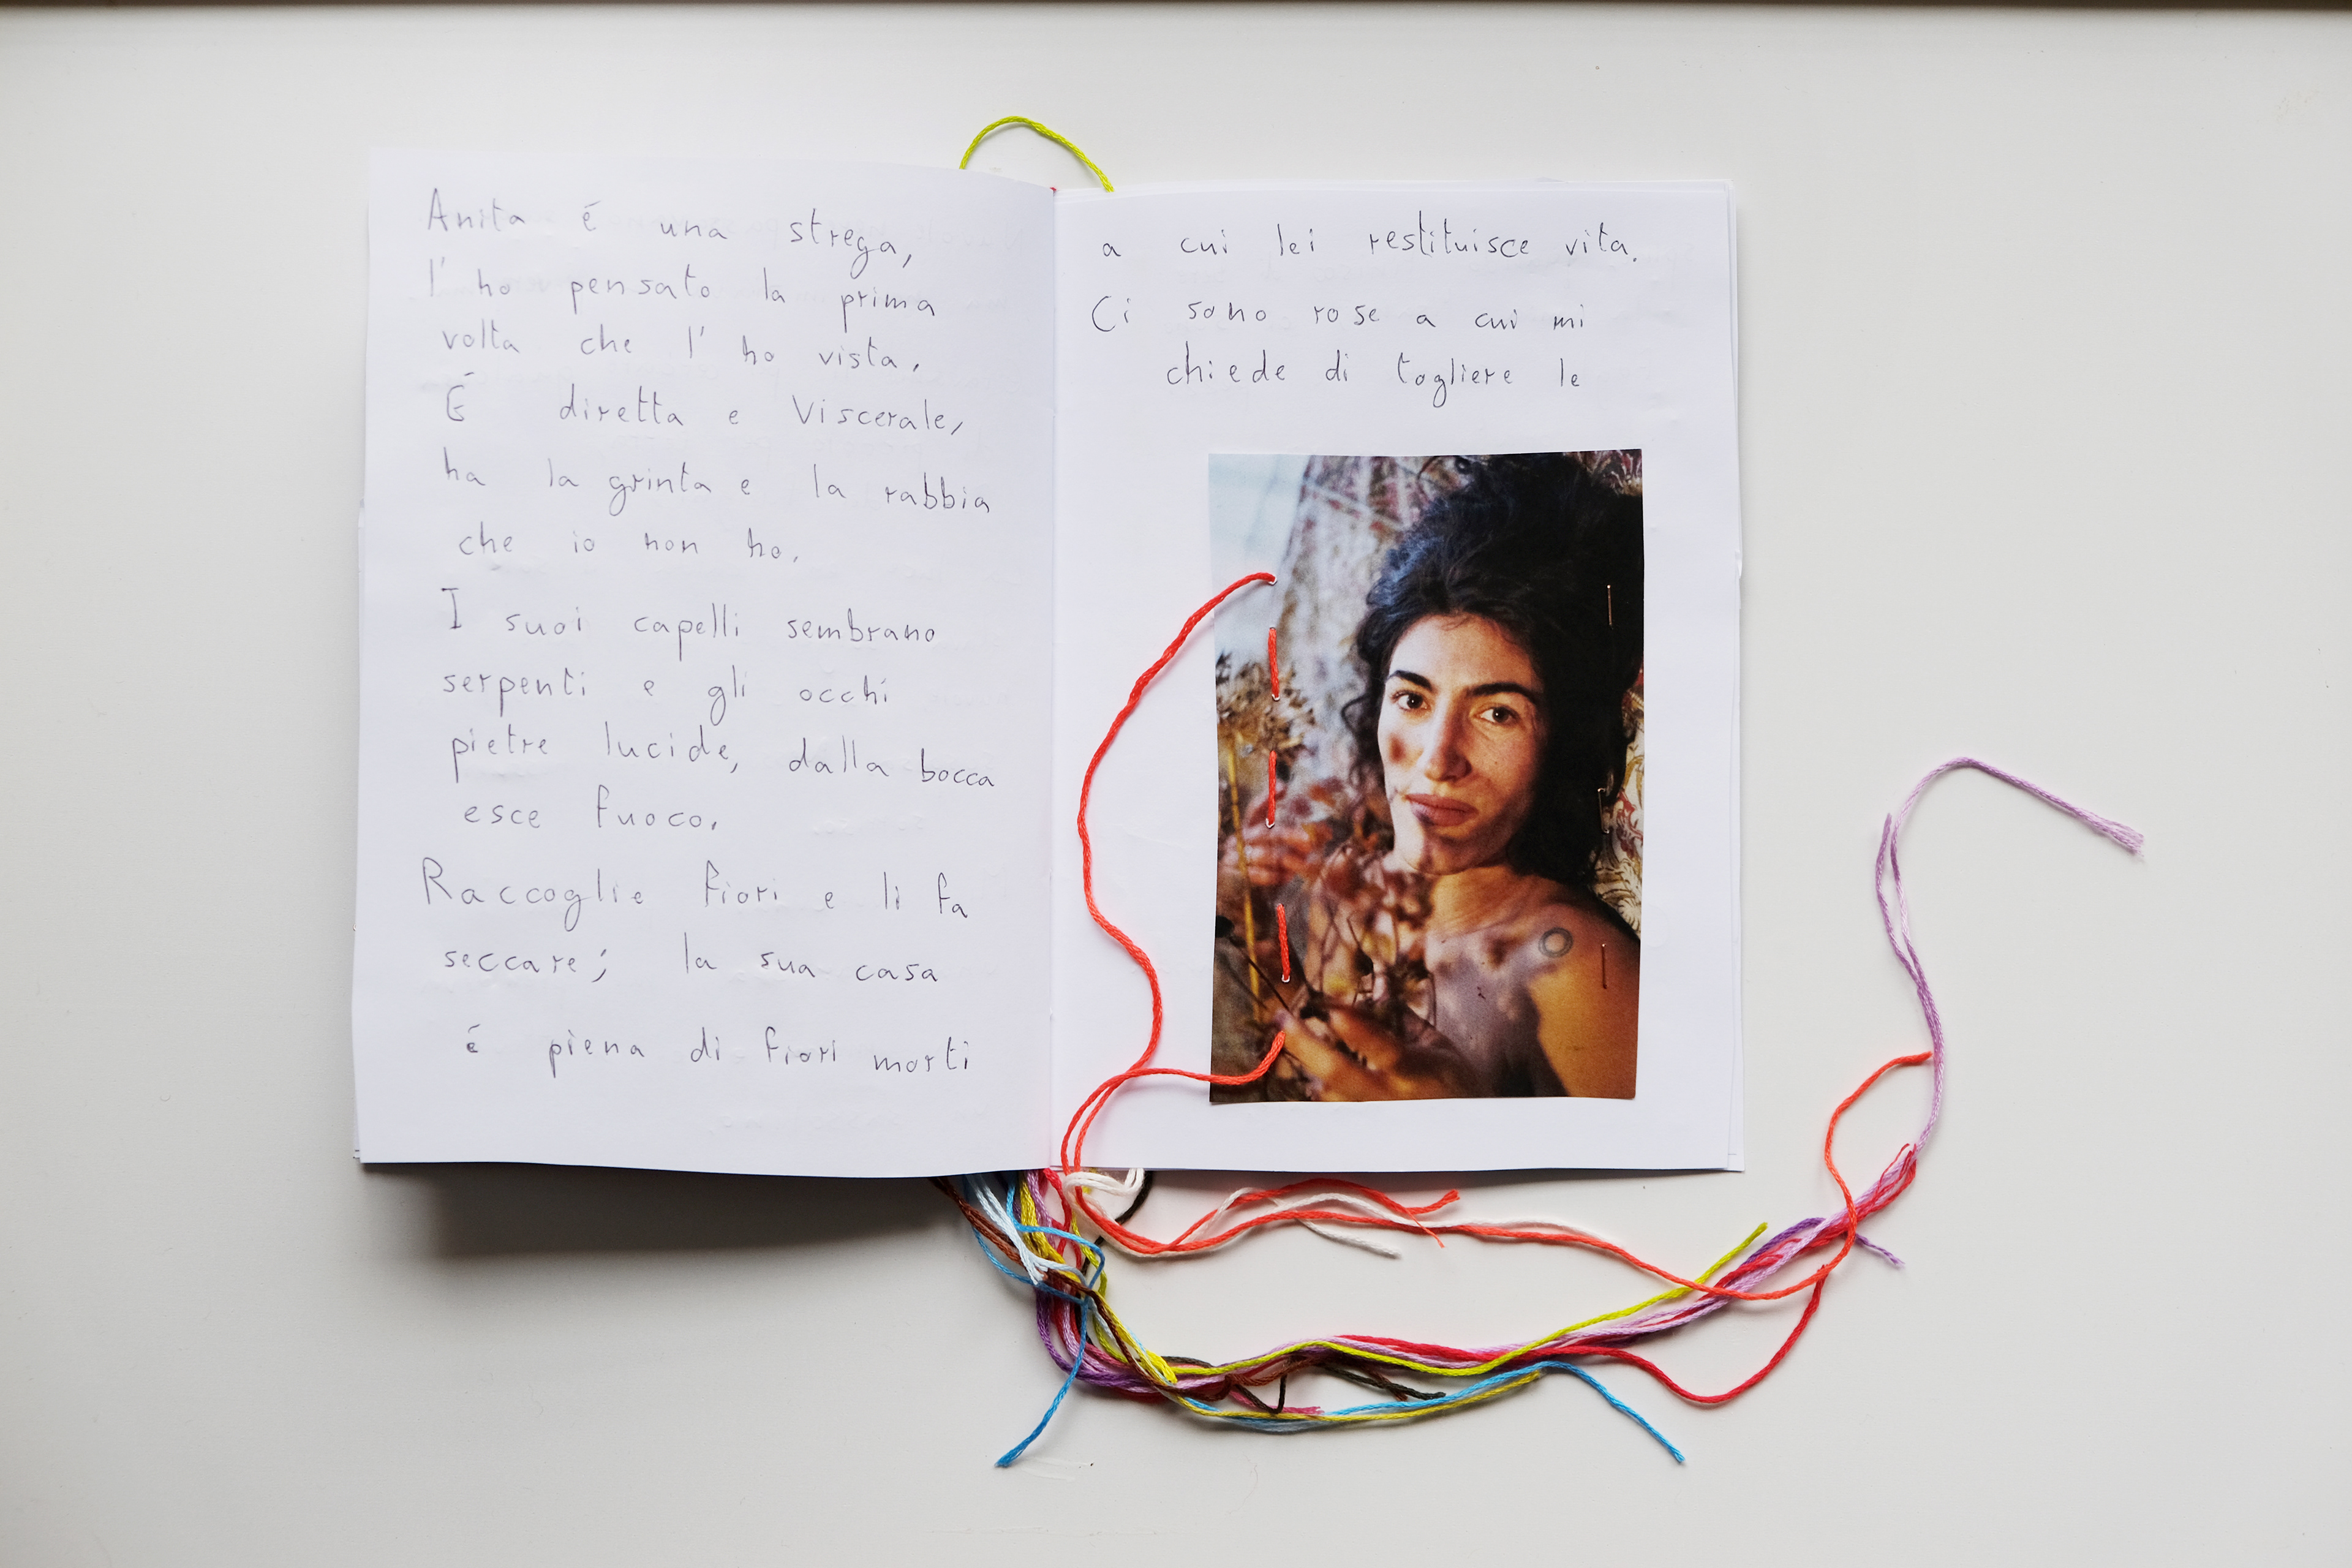 Anita é una strega,
l'ho pensato la prima
volta che l'ho vista.
É diretta e viscerale,
ha la grinta e la rabbia
che io non ho.
I suoi capelli sembrano
serpenti e gli occhi
pietre lucide, dalla bocca
esce fuoco.
Raccoglie fiori e li fa
seccare; la sua casa
é piena di fiori morti
a cui lei restituisce vita.
Ci sono rose a cui mi
chiede di togliere le